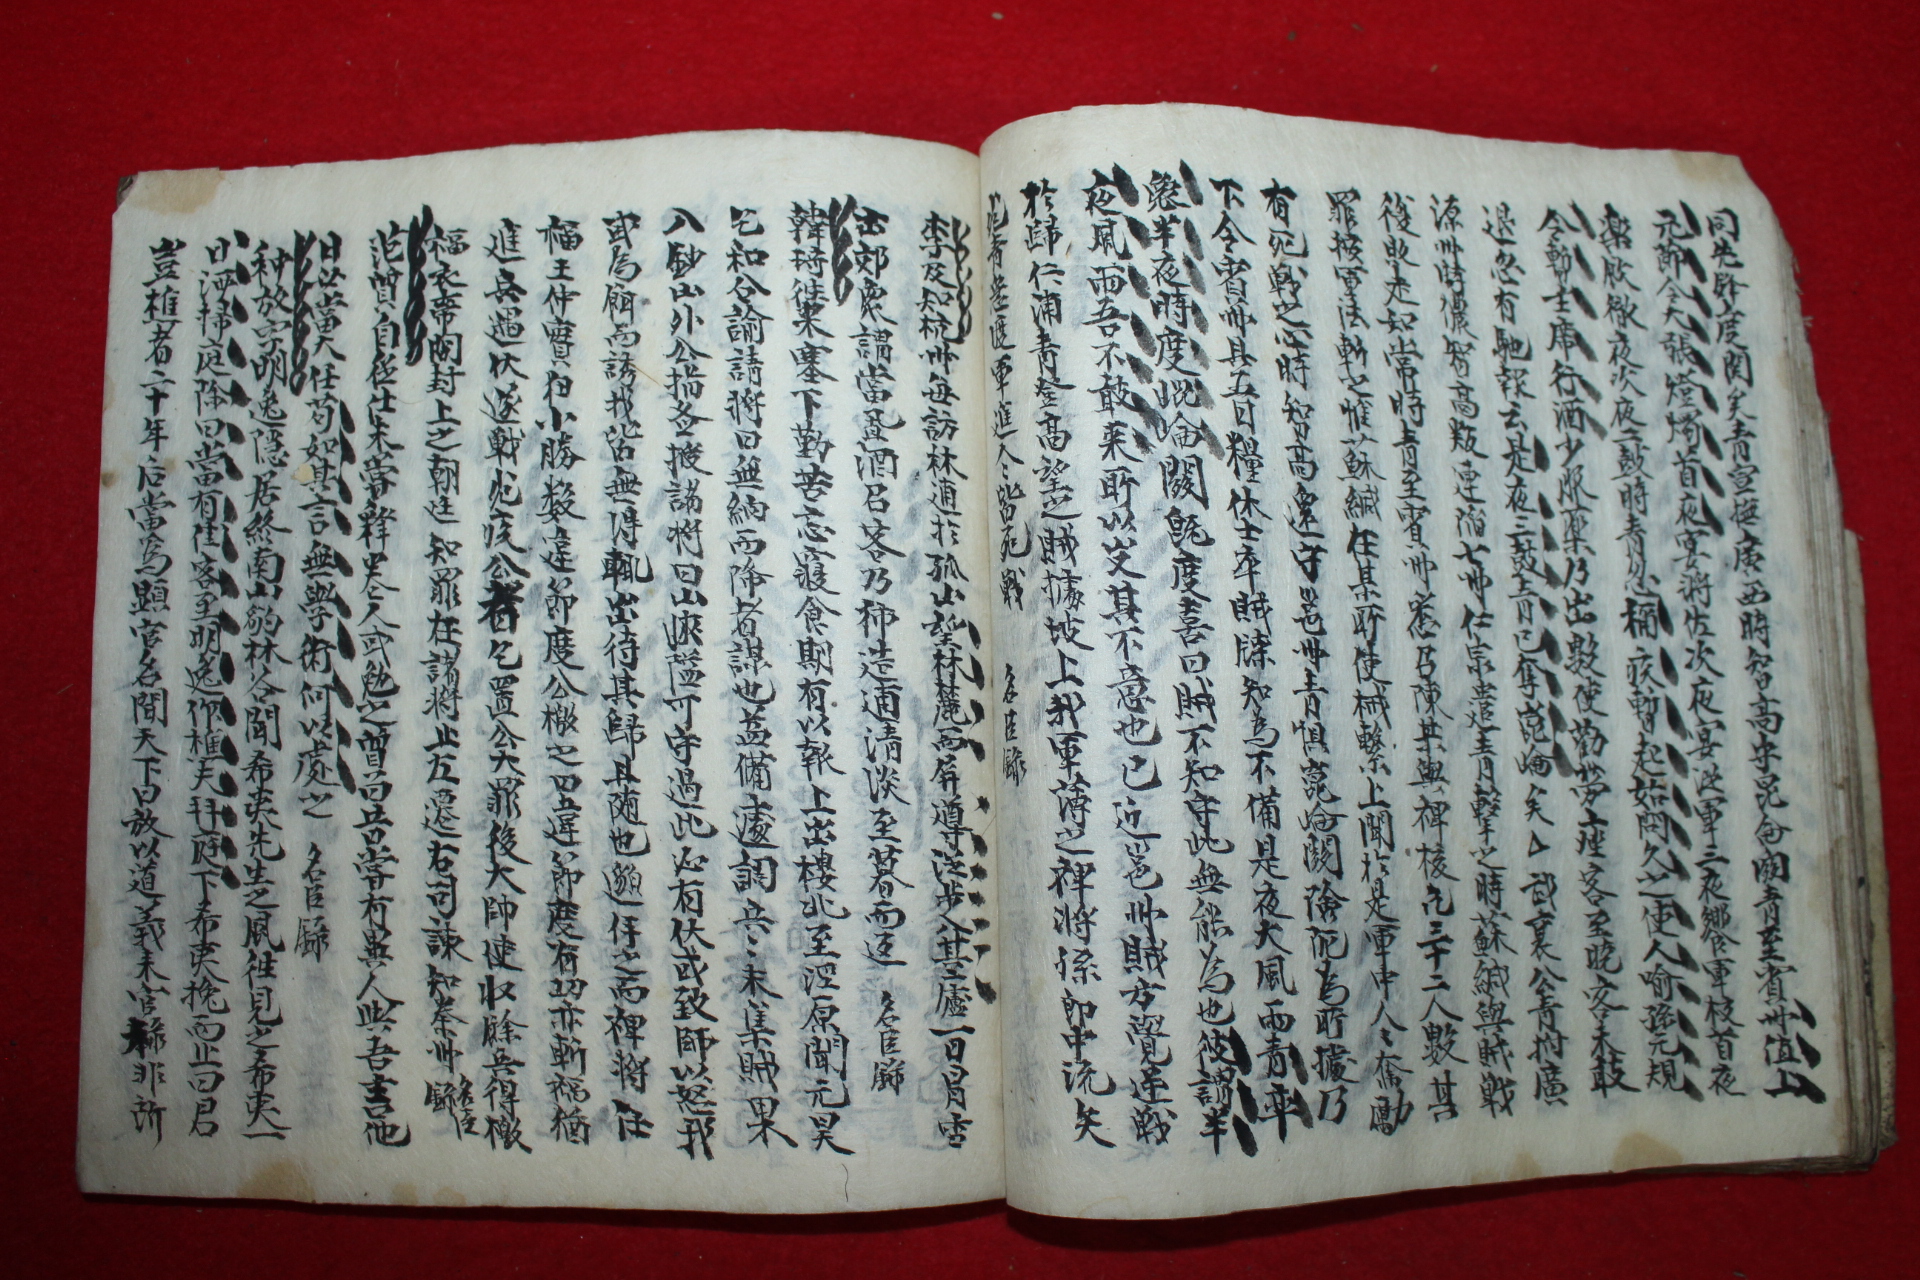 同先時度関矣青宣撫廣西時智高守昆侖関青至賓州值上
元節令大張燈燭首夜宴將佐次夜宴從軍三夜饗軍校首夜
樂飲徹夜次夜二鼓時青忽稱疾暫起如內久之使人喻孫元規
令暫主席行酒少服藥乃出數使勸勞座客至曉客未敢
退忽有馳報云是夜三鼓青已奪崑崙矣 武襄公青拊廣
源州時儂智高叛連陷七州仁宗遣青擊之時蘇緘與賊戰
後敗走如常時青至賓州悉召陳某與裨校凡三十二人數其
罪按軍法斬之惟蘇緘在某所使械繫上聞於是軍中人人奮勵
有死戰之心時智高還守邕州青懼崑崙関險阨為所據乃
下令賓州具五日糧休士卒賊牒知為不備是夜大風雨青率
衆半夜時度崑崙関既度喜曰賊不知守此無能為也彼謂半
夜風雨吾不敢來所以出其不意也已近邕州賊方覺逆戰
於歸仁浦青登高望之賊據坡上我軍薄之裨將孫節中流矢
死青急麾軍進人人皆死戰 名臣錄
李及知杭州每訪林逋於孤山望林麓而屏導從步入其廬一日冒雪
出郊衆謂當置酒召客乃獨造逋清談至暮而還 名臣錄
韓琦往來塞下勤苦忘寢食期有以報上出樓北至涇原聞元昊
乞和公諭諸將曰無納而降者謀也益備遽調兵兵未集賊果
入鈔山外公指各授諸將曰山狹隘可守過此必有伏或致師以怒我
或為餌而誘我皆無得輒出待其歸且憊也邀伴之而裨將任
福王仲寶狃小勝數違節度公檄之曰違節度有功亦斬福猶
進兵遇伏遂戰死疾公者乞置公大罪後大帥使收餘兵得檄
福衣帶間封上之朝廷知罪在諸將止左遷右司諫知秦州 名臣錄
范曾自從仕未嘗釋卷人或勉之曾曰吾嘗有異人與吾言他
日必當大任苟如其言無學術何以處之 名臣錄
种放字明逸隱居終南山豹林谷聞希夷先生之風往見之希夷一
日洒掃庭除曰當有佳客至明逸作樵夫拜庭下希夷挽而上曰君
豈樵者二十年后當為顯官名聞天下曰放以道義來官祿非所